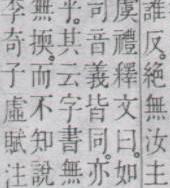 誰反。絕無汝主
虞禮釋文曰。如
司音義皆同。亦
乎。其云字書無
無㨎。而不知說
李奇子虛賦注